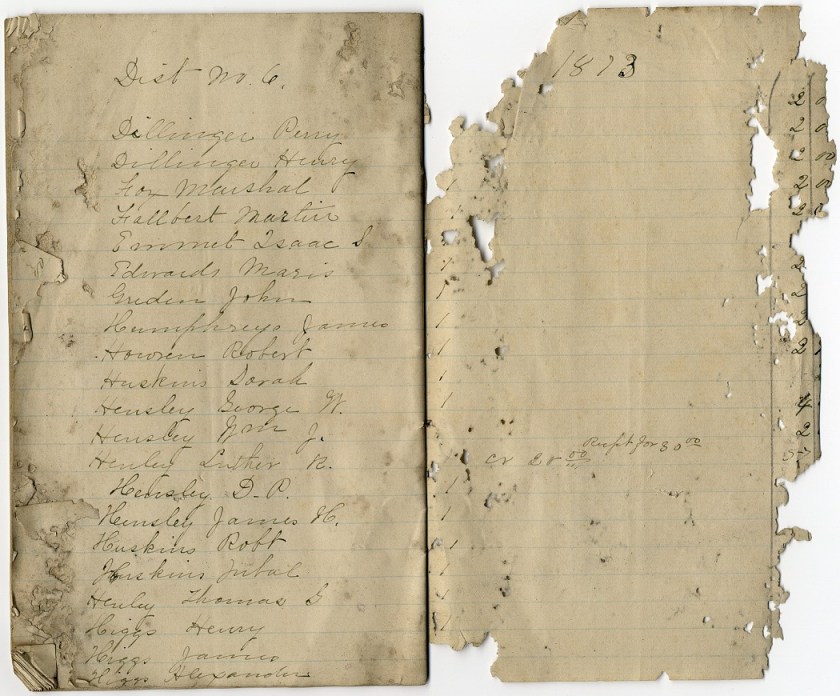 Dist No. 6.
Dillinger Perry
Dillinger Henry
Fox Marshal
Hallbert Martin
Emmet Isaac S
Edwards Maris
Greden John
Humphreys James
Howren Robert
Huskins Sarah
Hensley George W.
Hensley Wm J.
Henley Luther R.
Hensley D. P.
Hensley James H.
Huskins Robt
Huskins Jubal
Henley Thomas S
Higgs Henry
Higgs James
Higgs Alexander
1873
2 0
2 0
2 00
2 0
2
2
2
2
2
4
2
cr 28 00 Recpt for 30 00
5